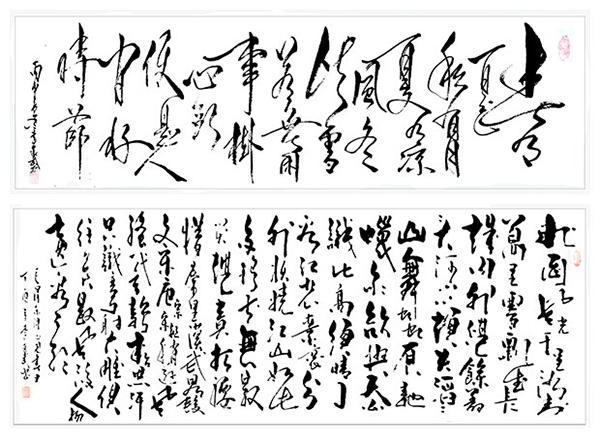 春有
百花
秋有月
夏有凉
風冬
有雪
若無閒
事掛
心頭
便是人
間好
時節
北國风光千里冰封
萬里雪飘望长
城内外惟餘莽莽
大河上下顿失滔滔
山舞银蛇原驰
蠟象欲與天公
试比高须晴日
看红装素裹分
外妖娆江山如此
多娇引无数
英雄竞折腰
惜秦皇漢武略输
文采唐宗宋祖稍逊风
骚一代天骄成吉思汗
只識弯弓射大雕俱
往矣数风流人物
还看今朝